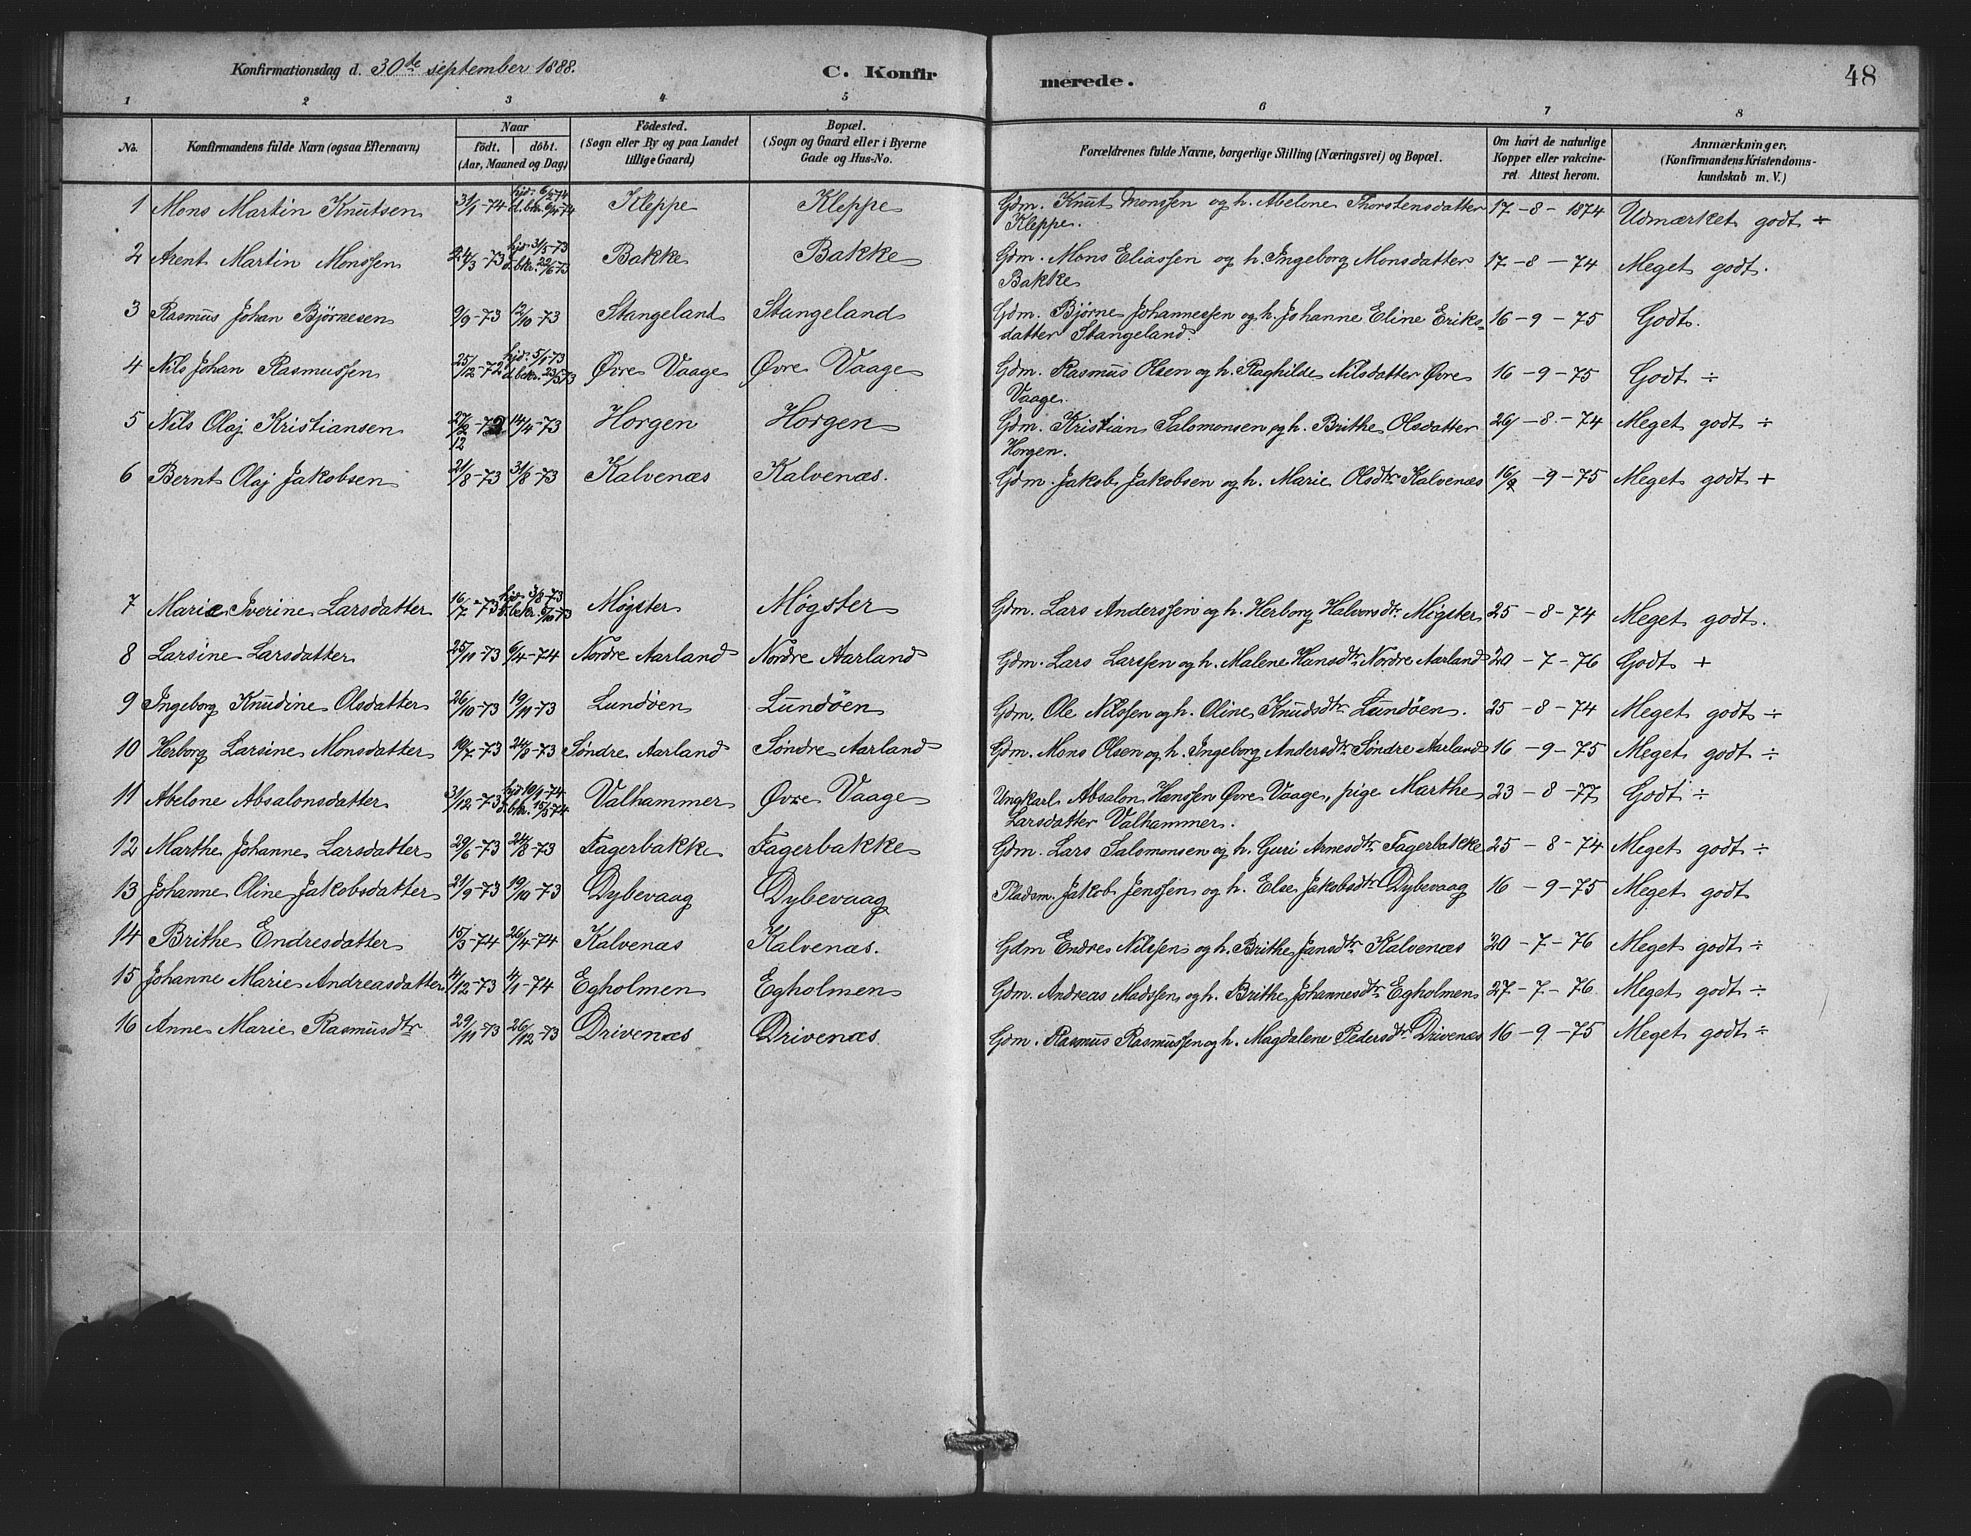 Konfirmationsdag d. 30de september 1888.
C. Konfir
merede.
48
1 2 3 4 5 6 7 8
No.
Konfirmandens fulde Navn (ogsaa Efternavn)
Naar
födt. döbt.
(Aar, Maaned og Dag)
Födested.
(Sogn eller By og paa Landet
tillige Gaard)
Bopæl.
(Sogn og Gaard eller i Byerne
Gade og Hus-No.
Forældrenes fulde Navne, borgerlige Stilling (Næringsvei) og Bopæl.
Om havt de naturlige
Kopper eller vakcine-
ret. Attest herom.
Anmærkninger.
(Konfirmandens Kristendoms-
kundskab m. V.)
1 Mons Martin Knutsen 3/1-74 hjd. 6/2-74 d. bkr. 6/4-74 Kleppe Kleppe Gdm. Knut Monssen og h. Abelone Thorstensdatter 17-8-1874 Udmærket godt ÷
Kleppe.
2 Arent Martin Monssen 24/3-73 hjd. 3/5-73 d. bkr. 22/6-73 Bakke Bakke Gdm. Mons Eliassen og h. Ingeborg Monsdatter 17-8-74 Meget godt.
Bakke
3 Rasmus Johan Björnesen 9/9-73 12/10-73 Stangeland Stangeland Gdm. Bjørne Johannessen og h. Johanne Eline Eriks- 16-9-75 Godt.
datter Stangeland.
4 Nils Johan Rasmussen 25/12-72 hjd. 5/1-73 d. bkr. 23/3-73 Øvre Vaage Øvre Vaage Gdm. Rasmus Olsen og h. Raghilde Nilsdatter Øvre 16-9-75 Godt ÷
Vaage.
5 Nils Olaj Kristiansen 27/12-72 14/4-73 Horgen Horgen Gdm. Kristian Salomonsen og h. Brithe Olsdatter 26-8-74 Meget godt ÷
Horgen.
6 Bernt Olaj Jakobsen 21/8-73 31/8-73 Kalvenæs Kalvenæs. Gdm. Jakob Jakobsen og h. Marie Olsdtr Kalvenæs 16-9-75 Meget godt +
7 Marie Iverine Larsdatter 16/7-73 hjd. 3/8-73 d. bekr. 5/10-73 Møgster Møgster Gdm. Lars Anderssen og h. Herborg Halvorsdtr. Møgster 25-8-74 Meget godt.
8 Larsine Larsdatter 25/11-73 6/4-74 Nordre Aarland Nordre Aarland Gdm. Lars Larssen og h. Malene Hansdtr. Nordre Aarland 20-7-76 Godt +
9 Ingeborg Knudine Olsdatter 26/10-73 19/11-73 Lundöen Lundöen Gdm. Ole Nilssen og h. Oline Knudsdtr Lundöen. 25-8-74 Meget godt ÷
10 Herborg Larsine Monsdatter 19/7-73 24/8-73 Söndre Aarland Söndre Aarland Gdm. Mons Olsen og h. Ingeborg Andersdtr Söndre Aarland 16-9-75 Meget godt ÷
11 Abelone Absalonsdatter 31/12-73 hjd. 10/1-74 d. bkr. 15/3-74 Valhammer Øvre Vaage Ungkarl Absalon Hanssen Øvre Vaage, pige Marthe 23-8-77 Godt ÷
Larsdatter Valhammer.
12 Marthe Johanne Larsdatter 29/6-73 24/8-73 Fagerbakke Fagerbakke Gdm. Lars Salomonsen og h. Guri Arnesdtr. Fagerbakke 25-8-74 Meget godt ÷
13 Johanne Oline Jakobsdatter 21/9-73 19/10-73 Dybevaag Dybevaag Pladsm. Jakob Jenssen og h. Else Jakobsdtr Dybevaag 16-9-75 Meget godt
14 Brithe Endresdatter 15/3-74 26/4-74 Kalvenæs Kalvenæs. Gdm Endre Nilssen og h. Brithe Jansdtr Kalvenæs 20-7-76 Meget godt ÷
15 Johanne Marie Andreasdatter 4/12-73 4/1-74 Egholmen Egholmen Gdm. Andreas Madssen og h. Brithe Johannesdtr. Egholmen 27-7-76 Meget godt ÷
16 Anne Marie Rasmusdtr 29/11-73 26/12-73 Drivenæs Drivenæs Gdm. Rasmus Rasmussen og h. Magdalene Pedersdtr Drivenæs 16-9-75 Meget godt ÷